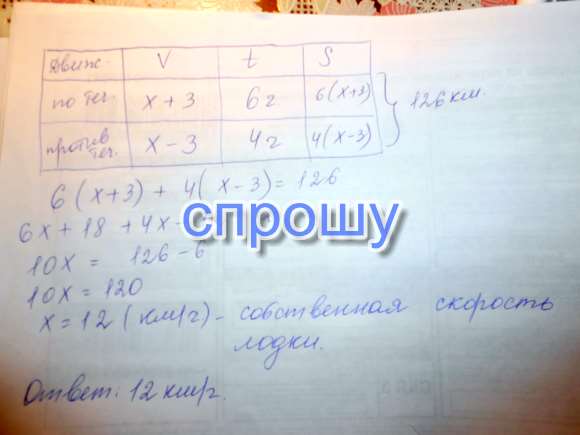 движ. V t S
по теч. x + 3 6 ч 6(x+3)
против теч. x - 3 4 ч 4(x-3)
126 км.
6(x+3) + 4(x-3) = 126
6x + 18 + 4x -
спрошу
10x = 126 - 6
10x = 120
x = 12 (км/ч) - собственная скорость
лодки.
Ответ: 12 км/ч.